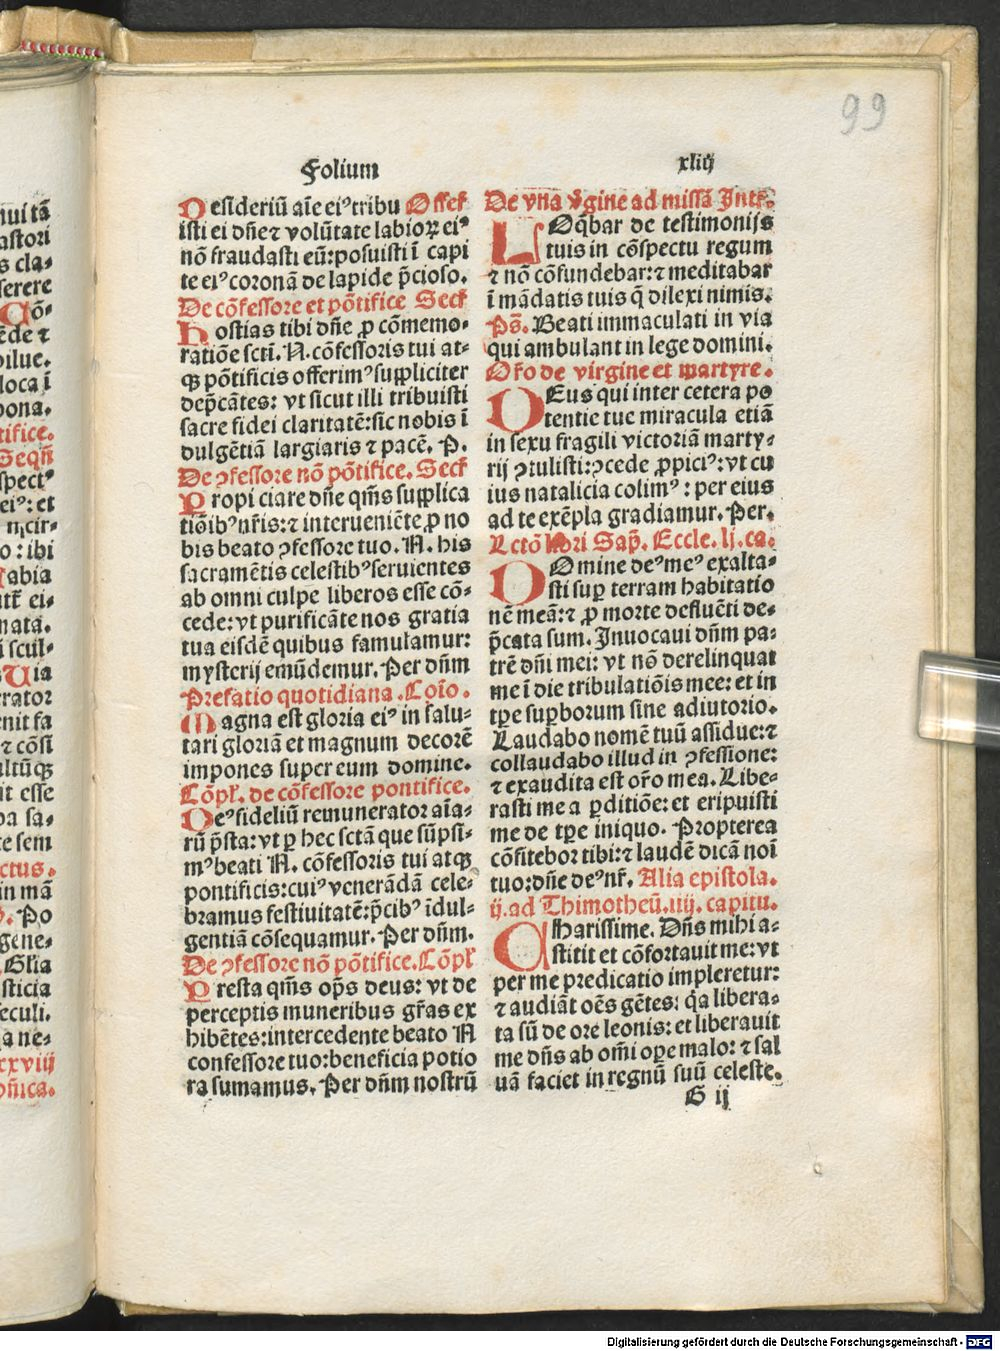 99
Folium xliij
Desideriū aīe eiꝰ tribu Offer
isti ei dn̄e ⁊ volūtate labioꝝ eiꝰ
nō fraudasti eū: posuisti ī capi
te eiꝰ coronā de lapide p̄cioso.
De cōfessore et pōtifice Secr̄
Hostias tibi dn̄e ꝓ cōmemo-
ratiōe sctī. N. cōfessoris tui at-
qꝫ pōtificis offerimꝰ suppliciter
dep̄cātes: vt sicut illi tribuisti
sacre fidei claritatē: sic nobis ī
dulgētiā largiaris ⁊ pacē. P.
De ꝯfessore nō pōtifice. Secr̄
Propiciare dn̄e qm̄s supplica
tiōibꝰ nr̄is: ⁊ interueniēte ꝓ no
bis beato ꝯfessore tuo. N. his
sacramētis celestibꝰ seruientes
ab omni culpe liberos esse cō-
cede: vt purificāte nos gratia
tua eisdē quibus famulamur:
mysterij emūdemur. Per dn̄m
Prefatio quotidiana. Cōio.
Magna est gloria eiꝰ in salu-
tari gloriā et magnum decorē
impones super eum domine.
Cōpl̄. de cōfessore pontifice.
Deꝰ fideliū remunerator aīa-
rū p̄sta: vt ꝑ hec sctā que sūpsi-
mꝰ beati N. cōfessoris tui atqꝫ
pontificis: cuiꝰ venerādā cele-
bramus festiuitatē: p̄cibꝰ īdul-
gentiā cōsequamur. Per dn̄m.
De ꝯfessore nō pōtifice. Cōpl̄
Presta qm̄s op̄s deus: vt de
perceptis muneribus gr̄as ex
hibētes: intercedente beato N
confessore tuo: beneficia potio
ra sumamus. Per dn̄m nostrū
De vna v̄gine ad missā Intr̄.
LOq̄bar de testimonijs
tuis in cōspectu regum
⁊ nō cōfundebar: ⁊ meditabar
ī mādatis tuis q̄ dilexi nimis.
Ps̄. Beati immaculati in via
qui ambulant in lege domini.
Or̄o de virgine et martyre.
DEus qui inter cetera po
tentie tue miracula etiā
in sexu fragili victoriā marty-
rij ꝯtulisti: ꝯcede ꝓpiciꝰ: vt cu
ius natalicia colimꝰ: per eius
ad te exēpla gradiamur. Per.
Lctō libri Sap̄. Eccle. lj. ca.
DOmine deꝰ meꝰ exalta-
sti suꝑ terram habitatio
nē meā: ⁊ ꝓ morte defluēti de-
p̄cata sum. Inuocaui dn̄m pa-
trē dn̄i mei: vt nō derelinquat
me ī die tribulatiōis mee: et in
tꝑe suꝑborum sine adiutorio.
Laudabo nomē tuū assidue: ⁊
collaudabo illud in ꝯfessione:
⁊ exaudita est or̄o mea. Libe-
rasti me a ꝑditiōe: et eripuisti
me de tꝑe iniquo. Propterea
cōfitebor tibi: ⁊ laudē dicā noī
tuo: dn̄e deꝰ nr̄. Alia epistola.
ij. ad Thimotheū. iiij. capitu.
CHarissime. Dn̄s mihi a-
stitit et cōfortauit me: vt
per me predicatio impleretur:
⁊ audiāt oēs gētes: q̄a libera-
ta sū de ore leonis: et liberauit
me dn̄s ab om̄i oꝑe malo: ⁊ sal
uā faciet in regnū suū celeste.
G ij
Digitalisierung gefördert durch die Deutsche Forschungsgemeinschaft - DFG